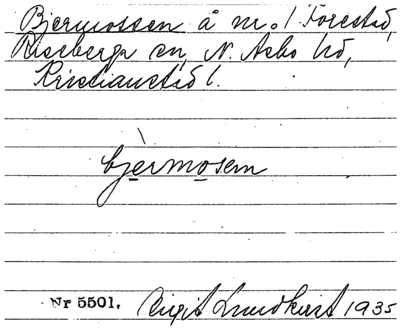 Bjermossen å nr 1 Forestad,
Riseberga sn, N. Åsbo hd,
Kristianstad l.
bjèrmosem
Nr 5501. Birgit Lundkvist 1935